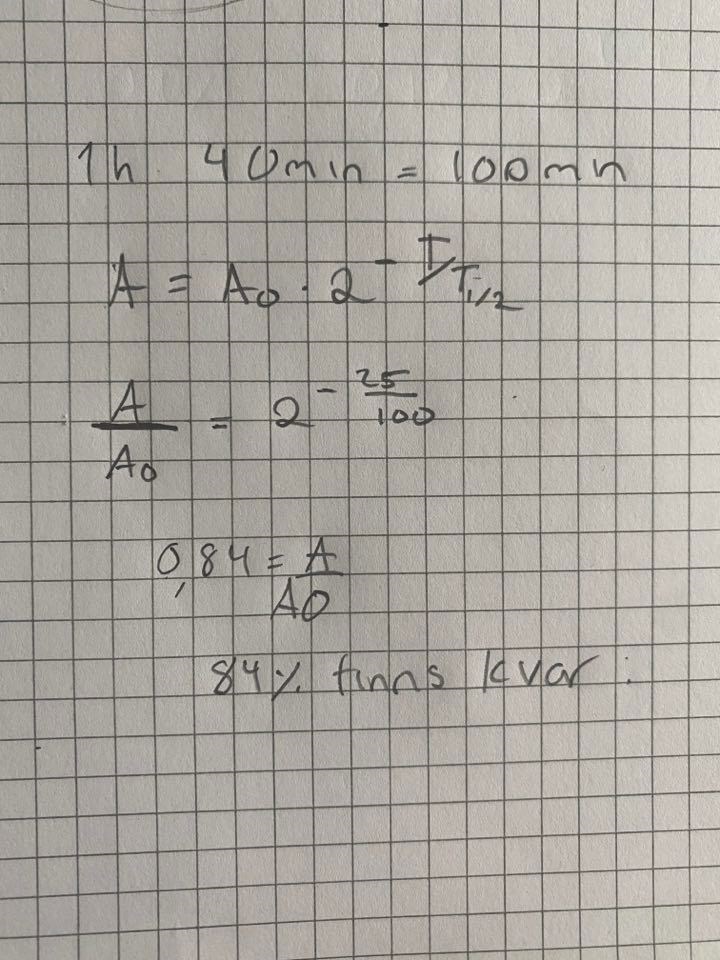 1h 40min = 100mn
A = A0 · 2^-T/T1/2
A/A0 = 2^-25/100
0,84 = A/A0
84% finns kvar.